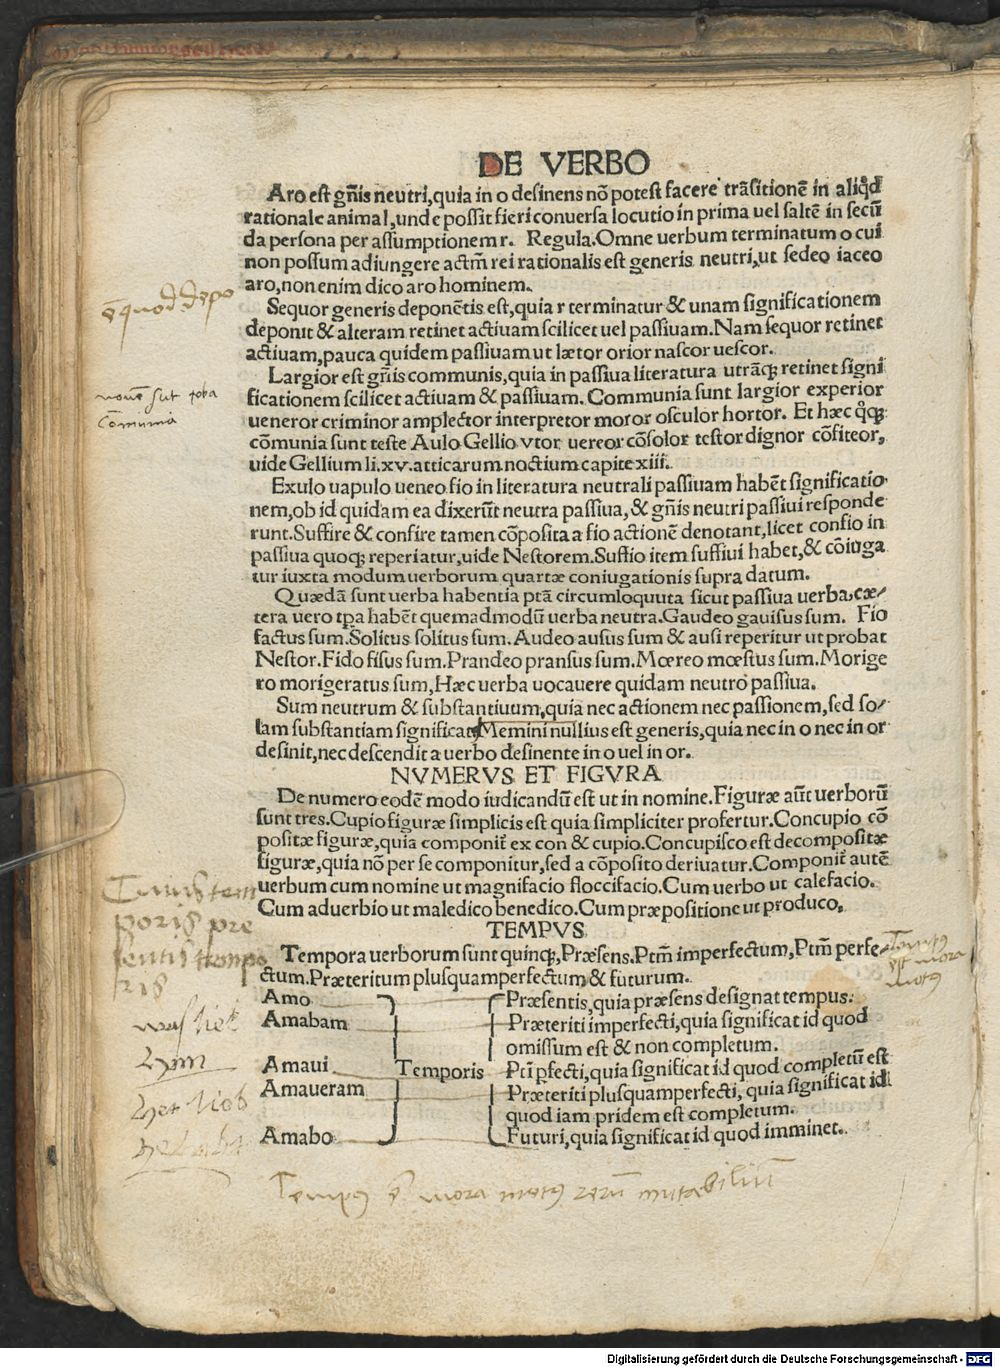 DE VERBO
Aro est gñis neutri,quia in o desinens nõ potest facere trãsitionẽ in aliqd
rationale animal,unde possit fieri conuersa locutio in prima uel saltẽ in secũ
da persona per assumptionem r. Regula.Omne uerbum terminatum o cui
non possum adiungere actm̃ rei rationalis est generis neutri,ut sedeo iaceo
aro,non enim dico aro hominem.
Sequor generis deponẽtis est,quia r terminatur & unam significationem
deponit & alteram retinet actiuam scilicet uel passiuam.Nam sequor retinet
actiuam,pauca quidem passiuam ut lætor orior nascor uescor.
Largior est gñis communis,quia in passiua literatura utrãq; retinet signi
ficationem scilicet actiuam & passiuam.Communia sunt largior experior
ueneror criminor amplector interpretor moror osculor hortor. Et hæc qq;
cõmunia sunt teste Aulo Gellio vtor uereor cõsolor testor dignor cõfiteor,
uide Gellium li.xv.atticarum noctium capite xiii.
Exulo uapulo ueneo fio in literatura neutrali passiuam habẽt significatio
nem,ob id quidam ea dixerũt neutra passiua,& gñis neutri passiui responde
runt.Suffire & confire tamen cõposita a fio actionẽ denotant,licet confio in
passiua quoq; reperiatur,uide Nestorem.Suffio item suffiui habet,& cõiuga
tur iuxta modum uerborum quartæ coniugationis supra datum.
Quædã sunt uerba habentia ptã circumloquuta sicut passiua uerba,cæ/
tera uero tpa habẽt quemadmodũ uerba neutra.Gaudeo gauisus sum. Fio
factus sum.Solitus solitus sum.Audeo ausus sum & ausi reperitur ut probat
Nestor.Fido fisus sum.Prandeo pransus sum.Mœreo mœstus sum.Morige
ro morigeratus sum,Hæc uerba uocauere quidam neutro passiua.
Sum neutrum & substantiuum,quia nec actionem nec passionem,sed so/
lam substantiam significat Memini nullius est generis,quia nec in o nec in or
desinit,nec descendit a uerbo desinente in o uel in or.
NVMERVS ET FIGVRA
De numero eodẽ modo iudicandũ est ut in nomine.Figuræ aũt uerborũ
sunt tres.Cupio figuræ simplicis est quia simpliciter profertur.Concupio cõ
positæ figuræ,quia componit̃ ex con & cupio.Concupisco est decompositæ
figuræ,quia nõ per se componitur,sed a cõposito deriuatur.Componit̃ autẽ
uerbum cum nomine ut magnifacio floccifacio.Cum uerbo ut calefacio.
Cum aduerbio ut maledico benedico.Cum præpositione ut produco.
TEMPVS
Tempora uerborum sunt quinq;,Præsens.Ptm̃ imperfectum,Ptm̃ perfe/
ctum.Præteritum plusquamperfectum & futurum.
Amo Præsentis,quia præsens designat tempus.
Amabam Præteriti imperfecti,quia significat id quod
omissum est & non completum.
Amaui Temporis Pti pfecti,quia significat id quod completũ est
Amaueram Præteriti plusquamperfecti, quia significat id
quod iam pridem est completum.
Amabo Futuri,quia significat id quod imminet.
Tempus ẽ mora motus rerũ mutabiliũ
Digitalisierung gefördert durch die Deutsche Forschungsgemeinschaft - DFG